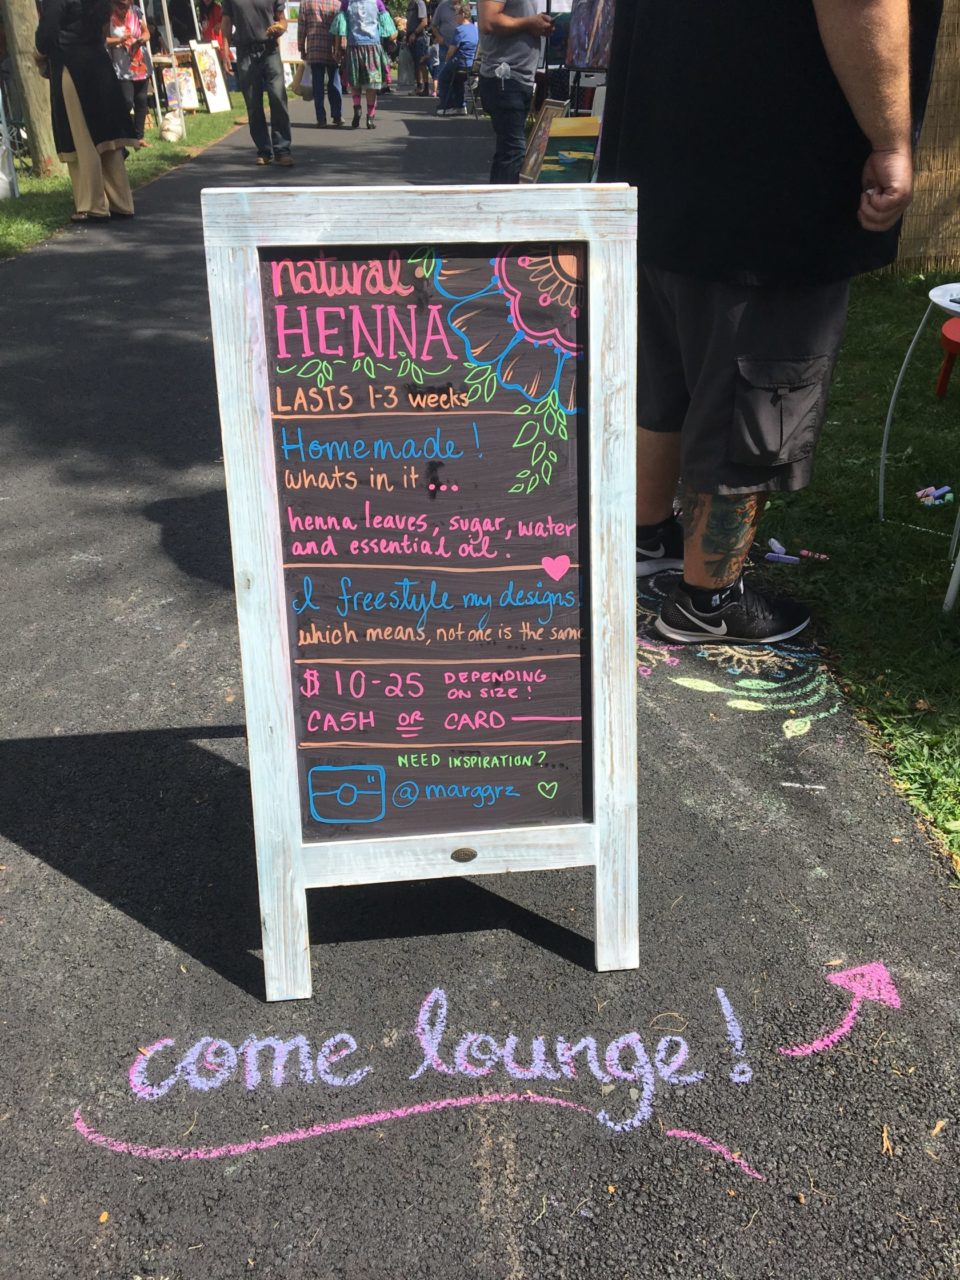 natural
HENNA
LASTS 1-3 weeks
Homemade!
whats in it ...
henna leaves, sugar, water
and essential oil.
I freestyle my designs
which means, not one is the same
$10-25 DEPENDING
ON SIZE!
CASH OR CARD
NEED INSPIRATION?
@marggrz
come lounge!